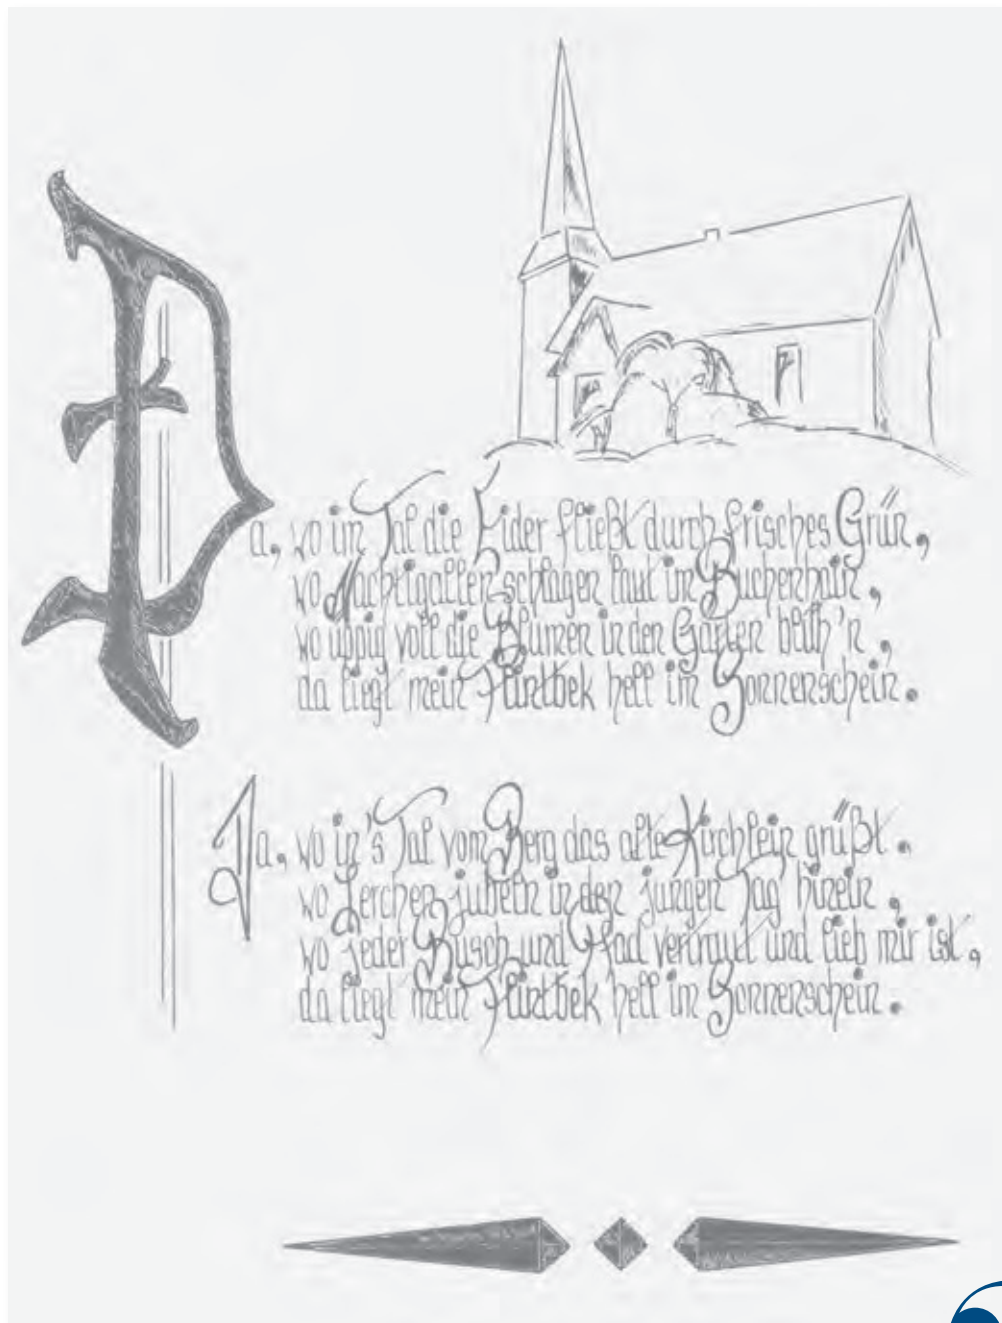 Da, wo im Tal die Eider fließt durch frisches Grün,
wo Nachtigallen schlagen laut im Buchenhain,
wo üppig voll die Blumen in den Gärten blüh'n,
da liegt mein Flintbek hell im Sonnenschein.
Da, wo in's Tal vom Berg das alte Kirchlein grüßt.
wo Lerchen jubeln in den jungen Tag hinein,
wo jeder Busch und Pfad vertraut und lieb mir ist,
da liegt mein Flintbek hell im Sonnenschein.